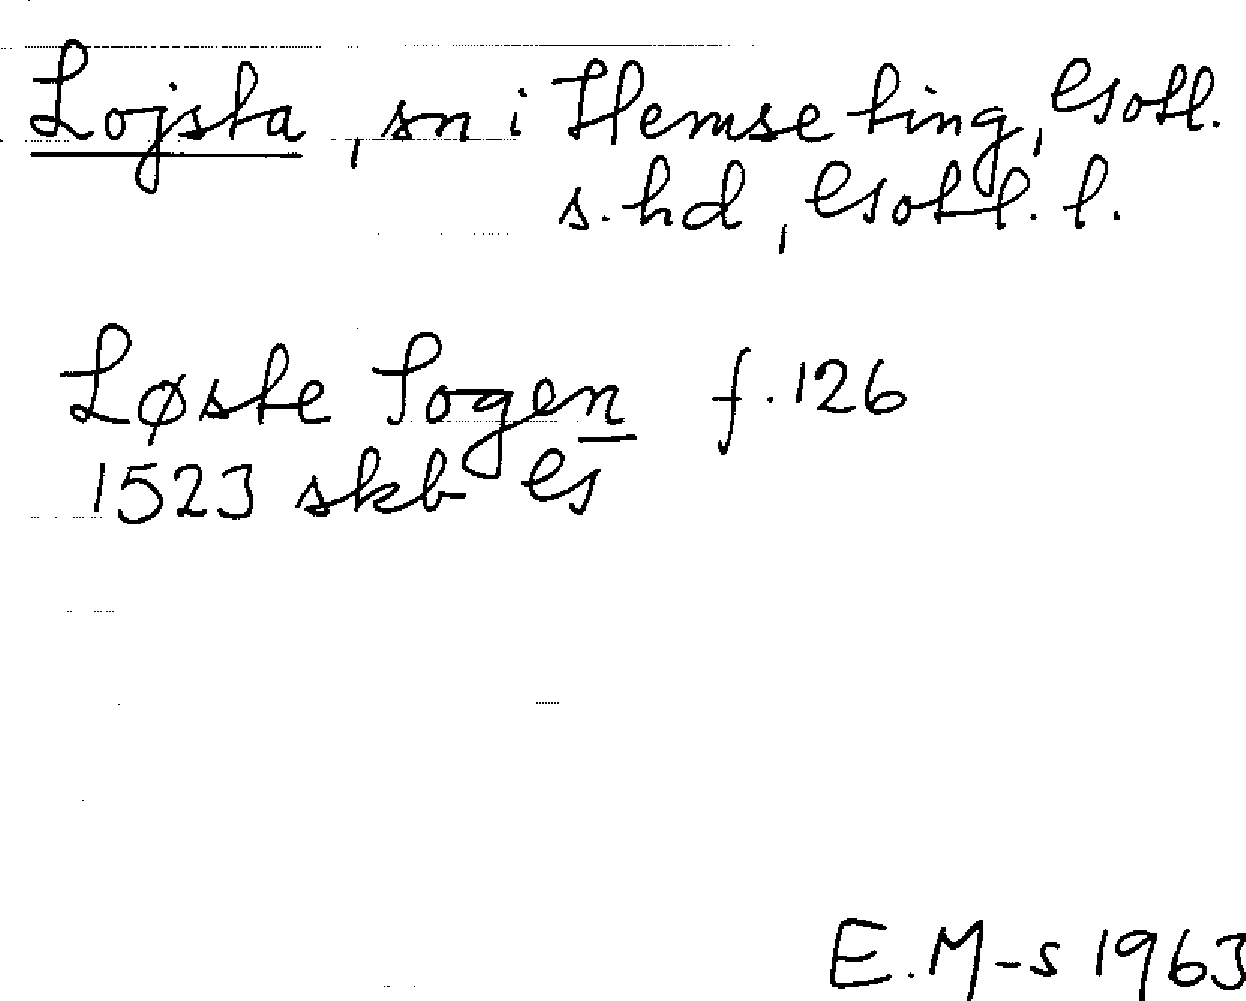 Lojsta, sn i Hemse ting, Gotl.
s. hd, Gotl. l.
Løste Sogen f. 126
1523 skb G
E.M-s 1963